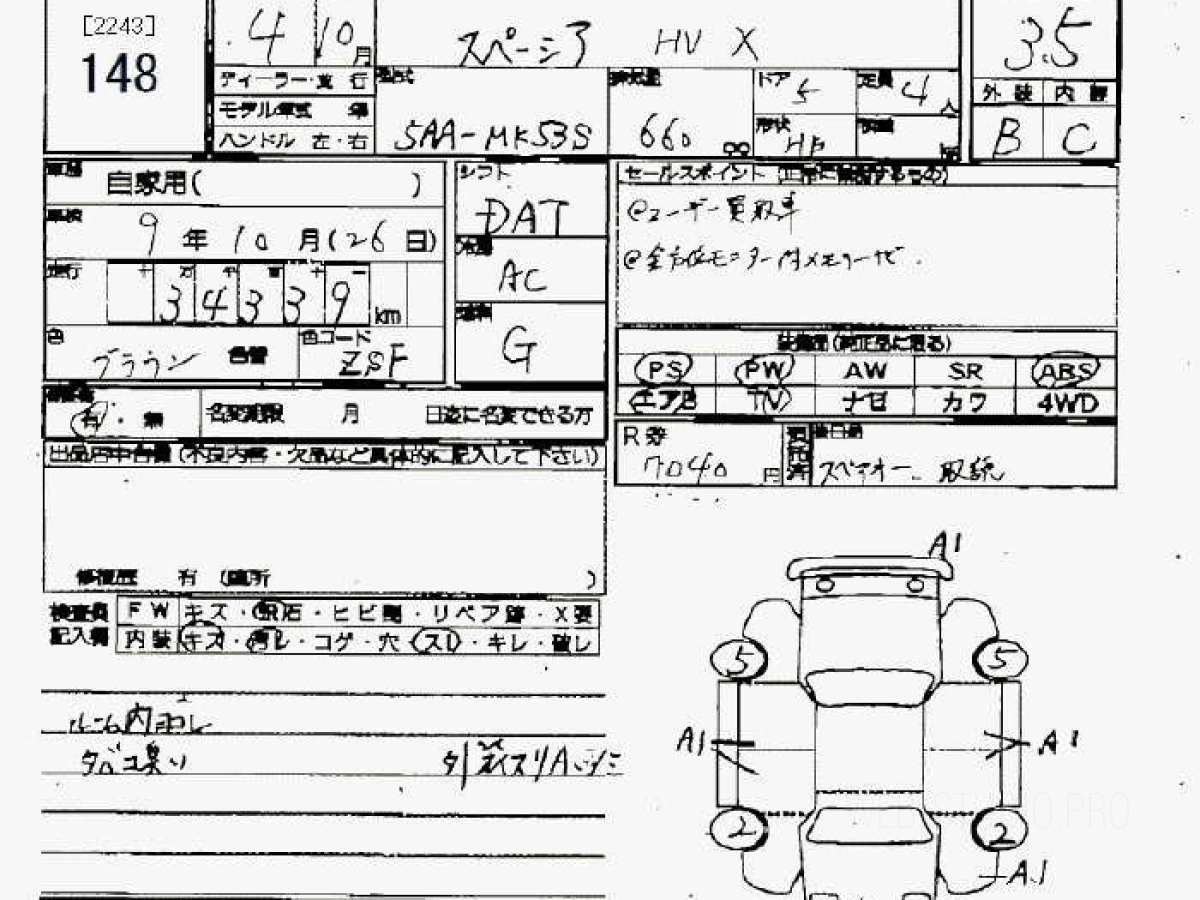 [2243]
148
4 10月
スペーシア HV X
3.5
ディーラー・並 行
型式
排気量
ドア 5
定員 4人
外装 内装
モデル年式 年
ハンドル 左・右
5AA-MK53S
660
形状 HB
B C
車歴 自家用( )
シフト
DAT
セールスポイント (正常に作動するもの)
@ユーザー買取車
車検 9年10月(26日)
冷房
AC
@全方位モニター付メモリーナビ
走行 十 万 千 百 十 一
34339 km
燃料
G
装備品(純正品に限る)
色 ブラウン 色替
色コード ZSF
PS PW AW SR ABS
エアB TV ナビ カワ 4WD
有・無 名変期限 月 日迄に名変できる方
R券
7040円
後日品
スペアキー、取説
出品店申告欄(不良内容・欠品など具体的に記入して下さい)
修復歴 有 (箇所 )
検査員 FW キズ・飛石・ヒビ割・リペア跡・X要
記入欄 内装 キズ・汚レ・コゲ・穴・スレ・キレ・破レ
ルーム内ヨゴレ
タバコ臭い
A1
5 5
A1 A1
2 2
A1